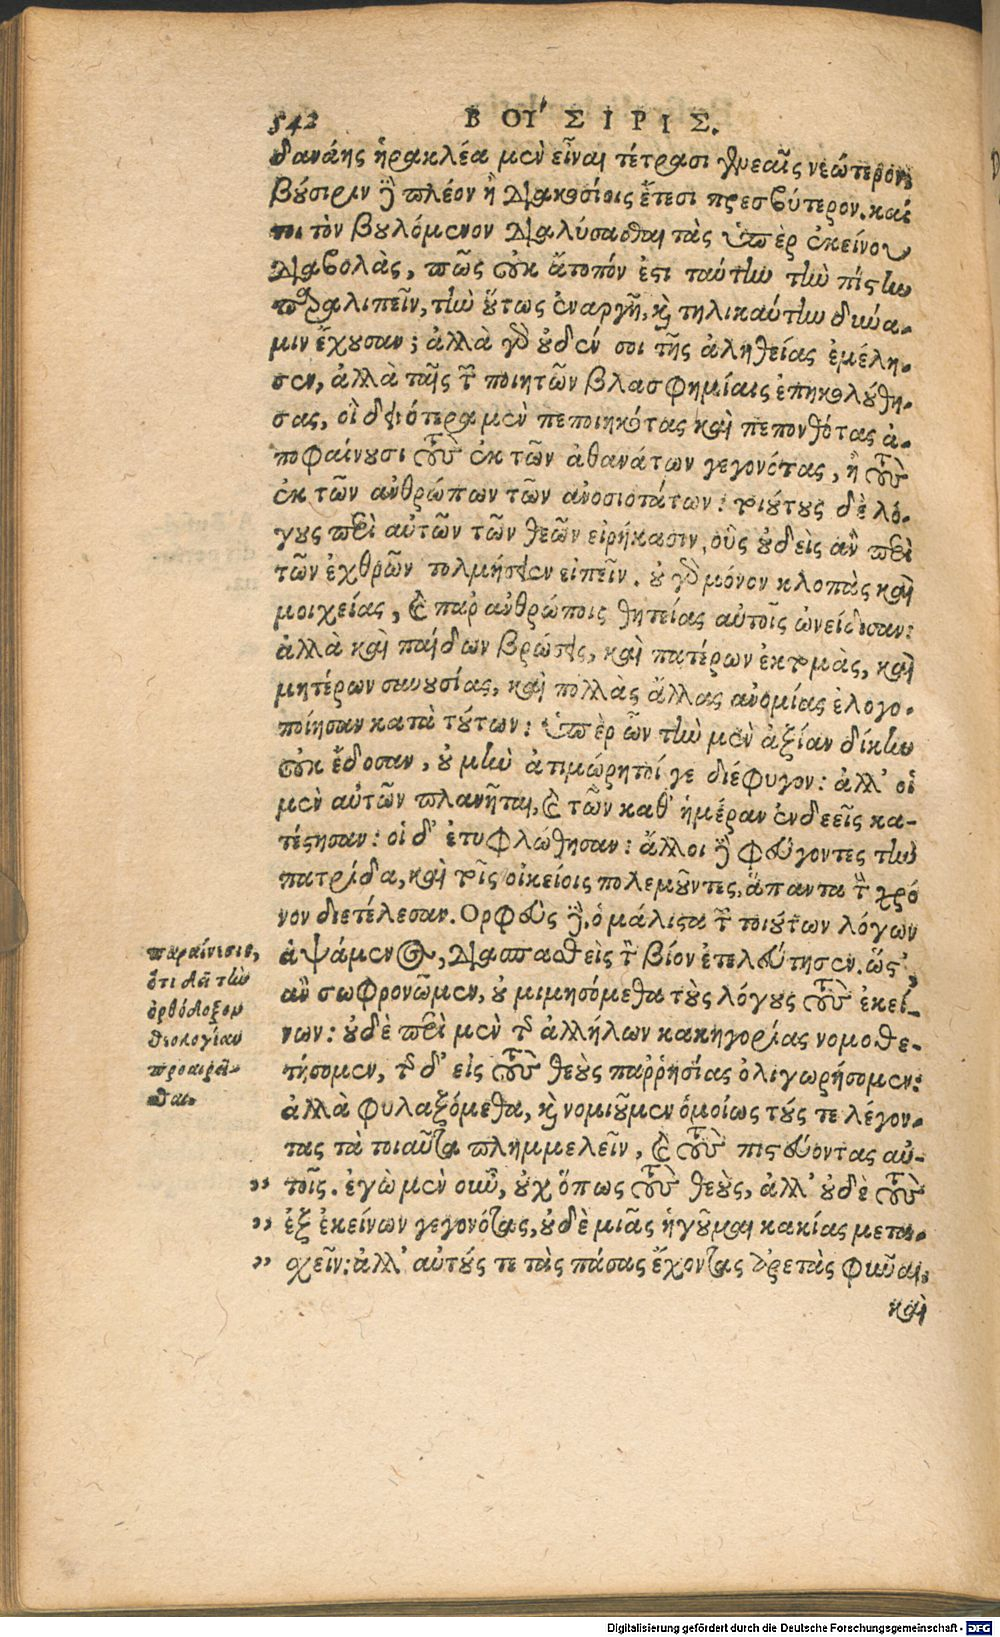 542 ΒΟΎΣΙΡΙΣ.
δανάης ἡρακλέα μὲν εἶναι τέτρασι γενεαῖς νεώτερον,
βούσιριν δὲ πλέον ἢ διακοσίοις ἔτεσι πρεσβύτερον. καί
τοι τὸν βουλόμενον διαλύσασθαι τὰς ὑπὲρ ἐκείνου
διαβολὰς, πῶς οὐκ ἄτοπόν ἐστι ταύτην τὴν πίστιν
παραλιπεῖν, τὴν οὕτως ἐναργῆ, καὶ τηλικαύτην δύνα-
μιν ἔχουσαν; ἀλλὰ γὰρ οὐδέν σοι τῆς ἀληθείας ἐμέλη-
σεν, ἀλλὰ ταῖς τῶν ποιητῶν βλασφημίαις ἐπηκολούθη-
σας, οἳ δεινότερα μὲν πεποιηκότας καὶ πεπονθότας ἀ-
ποφαίνουσι τοὺς ἐκ τῶν ἀθανάτων γεγονότας, ἢ τοὺς
ἐκ τῶν ἀνθρώπων τῶν ἀνοσιοτάτων: τοιούτους δὲ λό-
γους περὶ αὐτῶν τῶν θεῶν εἰρήκασιν, οὓς οὐδεὶς ἂν περὶ
τῶν ἐχθρῶν τολμήσειεν εἰπεῖν. οὐ γὰρ μόνον κλοπὰς καὶ
μοιχείας, καὶ παρ' ἀνθρώποις θητείας αὐτοῖς ὠνείδισαν:
ἀλλὰ καὶ παίδων βρώσεις, καὶ πατέρων ἐκτομὰς, καὶ
μητέρων συνουσίας, καὶ πολλὰς ἄλλας ἀνομίας ἐλογο-
ποίησαν κατὰ τούτων: ὑπὲρ ὧν τὴν μὲν ἀξίαν δίκην
οὐκ ἔδοσαν, οὐ μὴν ἀτιμώρητοί γε διέφυγον: ἀλλ' οἱ
μὲν αὐτῶν πλανῆται, καὶ τῶν καθ' ἡμέραν ἐνδεεῖς κα-
τέστησαν: οἱ δ' ἐτυφλώθησαν: ἄλλοι δὲ φεύγοντες τὴν
πατρίδα, καὶ τοῖς οἰκείοις πολεμοῦντες, ἅπαντα τὸν χρό
νον διετέλεσαν. Ορφεὺς δὲ, ὁ μάλιστα τῶν τοιούτων λόγων
ἁψάμενος, διασπασθεὶς τὸν βίον ἐτελεύτησεν. ὥστ',
ἂν σωφρονῶμεν, οὐ μιμησόμεθα τοὺς λόγους τοὺς ἐκεί-
νων: οὐδὲ περὶ μὲν τῆς ἀλλήλων κακηγορίας νομοθε-
τήσομεν, τῆς δ' εἰς τοὺς θεοὺς παῤῥησίας ὀλιγωρήσομεν:
ἀλλὰ φυλαξόμεθα, καὶ νομιοῦμεν ὁμοίως τούς τε λέγον-
τας τὰ τοιαῦτα πλημμελεῖν, καὶ τοὺς πιστεύοντας αὐ-
» τοῖς. ἐγὼ μὲν οὖν, οὐχ ὅπως τοὺς θεοὺς, ἀλλ' οὐδὲ τοὺς
» ἐξ ἐκείνων γεγονότας, οὐδὲ μιᾶς ἡγοῦμαι κακίας μετα-
» σχεῖν: ἀλλ' αὐτούς τε τὰς πάσας ἔχοντας ἀρετὰς φῦναι,
καὶ
παραίνεσις,
ὅτι δεῖ τὴν
ὀρθόδοξον
θεολογίαν
προαιρεῖ-
σθαι.